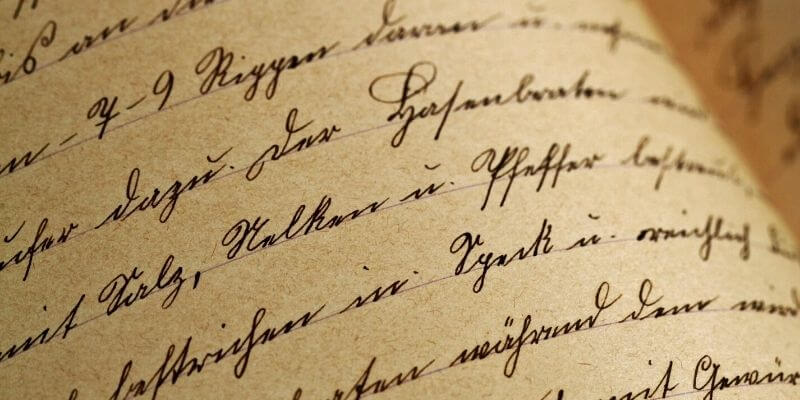 bis an die
n - 7-9 Rippen daran u.
ufer dazu. Der Hasenbraten
mit Salz, Nelken u. Pfeffer bestreut
bestrichen in Speck u. reichlich
braten während dem wird
mit Gewür